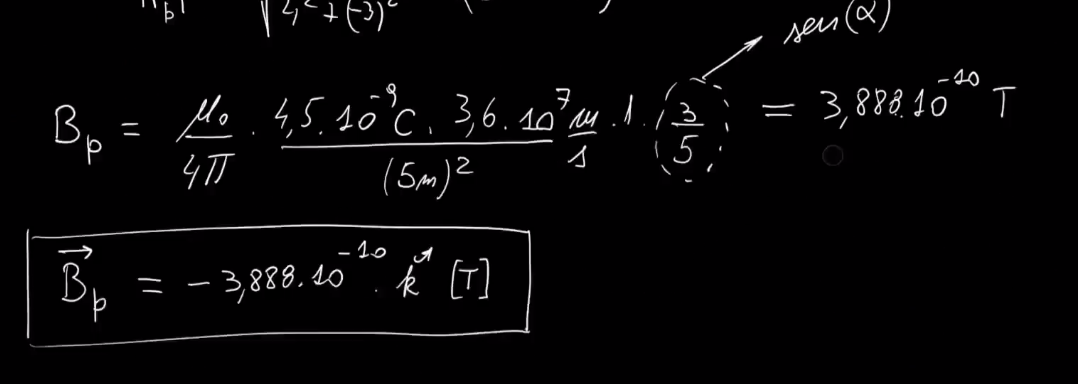 √4²+(-3)²
sen(α)
Bₚ = μ₀/4π · 4,5·10⁻⁹C · 3,6·10⁷ m/s · 1 · 3/5 / (5m)² = 3,888·10⁻¹⁰ T
B⃗ₚ = -3,888·10⁻¹⁰ · k̂ [T]